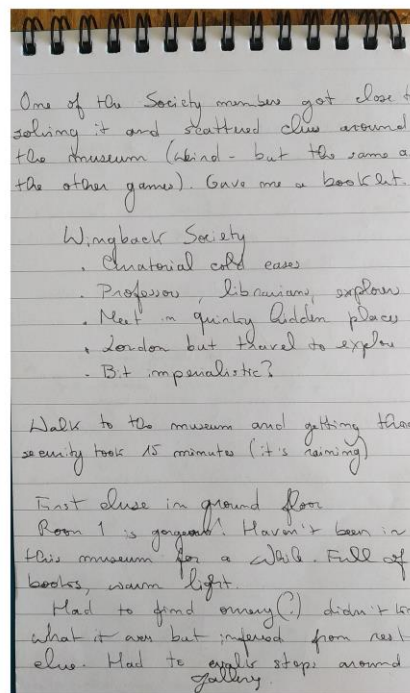 One of the Society members got close t
solving it and scattered clues around
the museum (weird - but the same a
the other games). Gave me a booklet.
Wingback Society
. Curatorial cold cases
. Professors, librarians, explorer
. Meet in quirky hidden places
. London but travel to explore
. Bit imperialistic?
Walk to the museum and getting thro
security took 15 minutes (it's raining)
First clue in ground floor
Room 1 is gorgeous! Haven't been in
this museum for a while. Full of
books, warm light.
Had to find emery(?) didn't kn
what it was but inferred from rest
clue. Had to walk steps around
gallery.